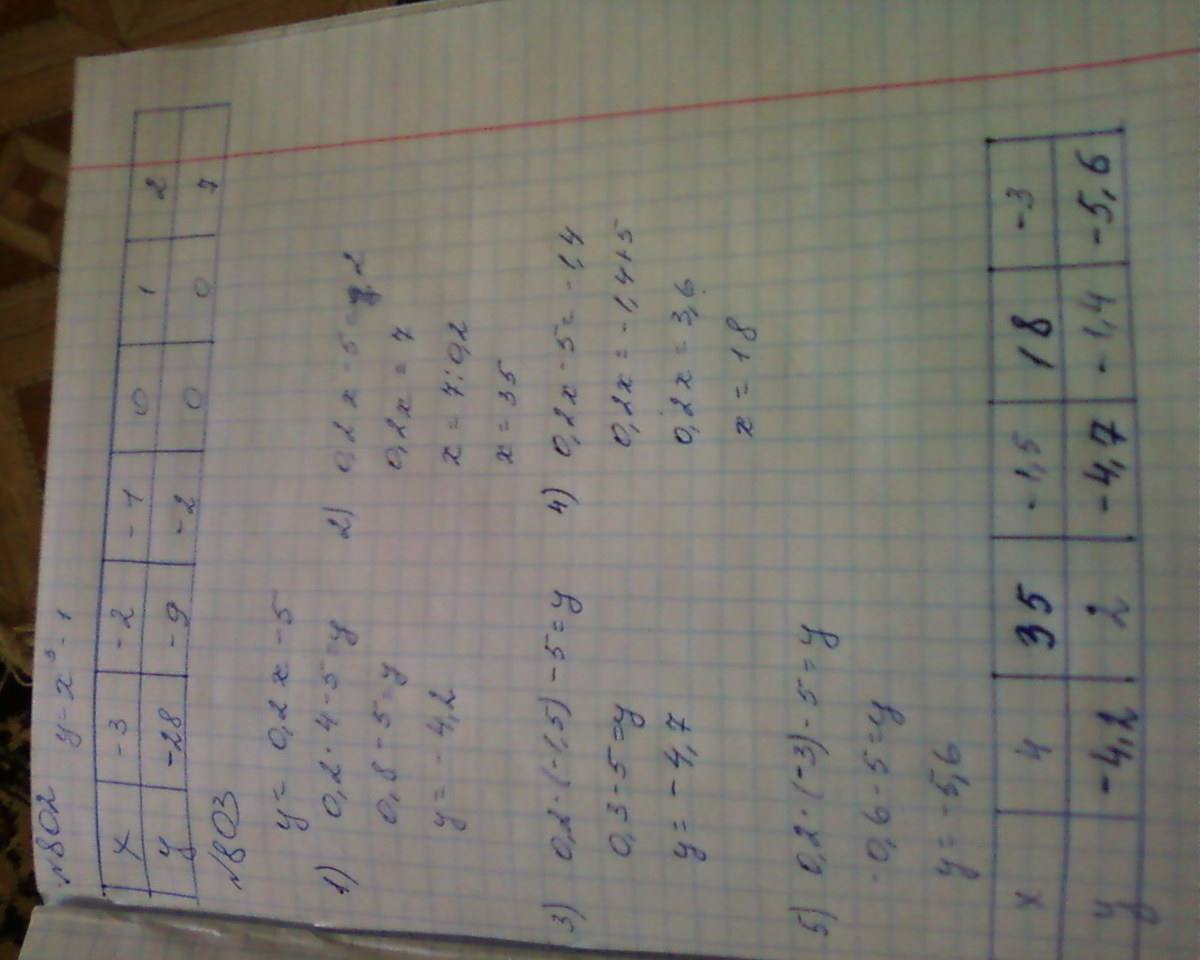 №802 y=x³-1
x -3 -2 -1 0 1 2
y -28 -9 -2 0 0 7
№803
y = 0,2x-5
1) 0,2·4-5=y
0,8-5=y
y=-4,2
2) 0,2x-5=2
0,2x=7
x=7:0,2
x=35
3) 0,2·(-1,5)-5=y
0,3-5=y
y=-4,7
4) 0,2x-5=-1,4
0,2x=-1,4+5
0,2x=3,6
x=18
5) 0,2·(-3)-5=y
-0,6-5=y
y=-5,6
x 4 35 -1,5 18 -3
y -4,2 2 -4,7 -1,4 -5,6